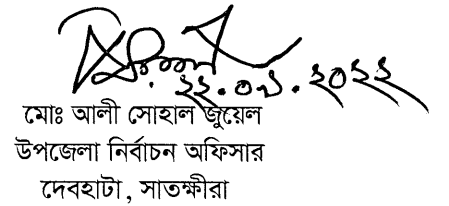 ২২.০১.২০২২
মোঃ আলী সোহাল জুয়েল
উপজেলা নির্বাচন অফিসার
দেবহাটা, সাতক্ষীরা